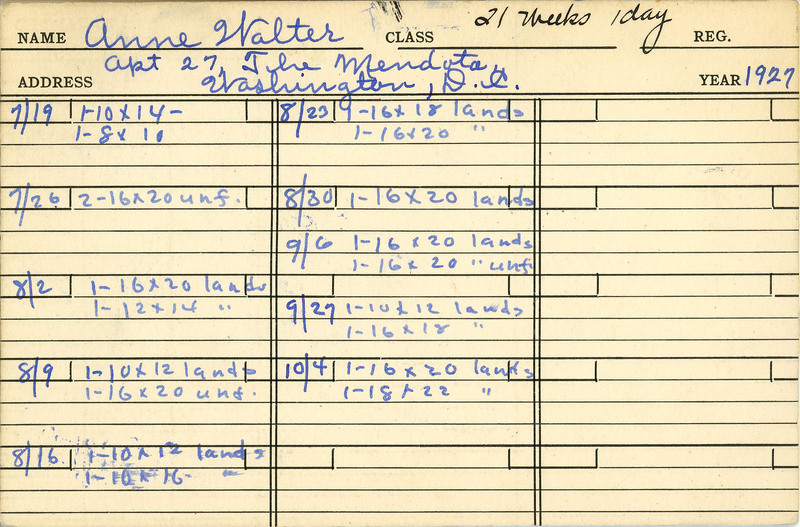 NAME Anne Walter CLASS 21 weeks 1 day REG.
Apt 27, The Mendota,
ADDRESS Washington, D.C. YEAR 1927
7/19 1-10x14-
1-8x10
7/26 2-16x20 unf.
8/2 1-16x20 lands
1-12x14 "
8/9 1-10x12 lands
1-16x20 unf.
8/16 1-10x12 lands
1-10x16 "
8/23 1-16x18 lands
1-16x20 "
8/30 1-16x20 lands
9/6 1-16x20 lands
1-16x20 " unf
9/27 1-10x12 lands
1-16x18 "
10/4 1-16x20 lands
1-18x22 "